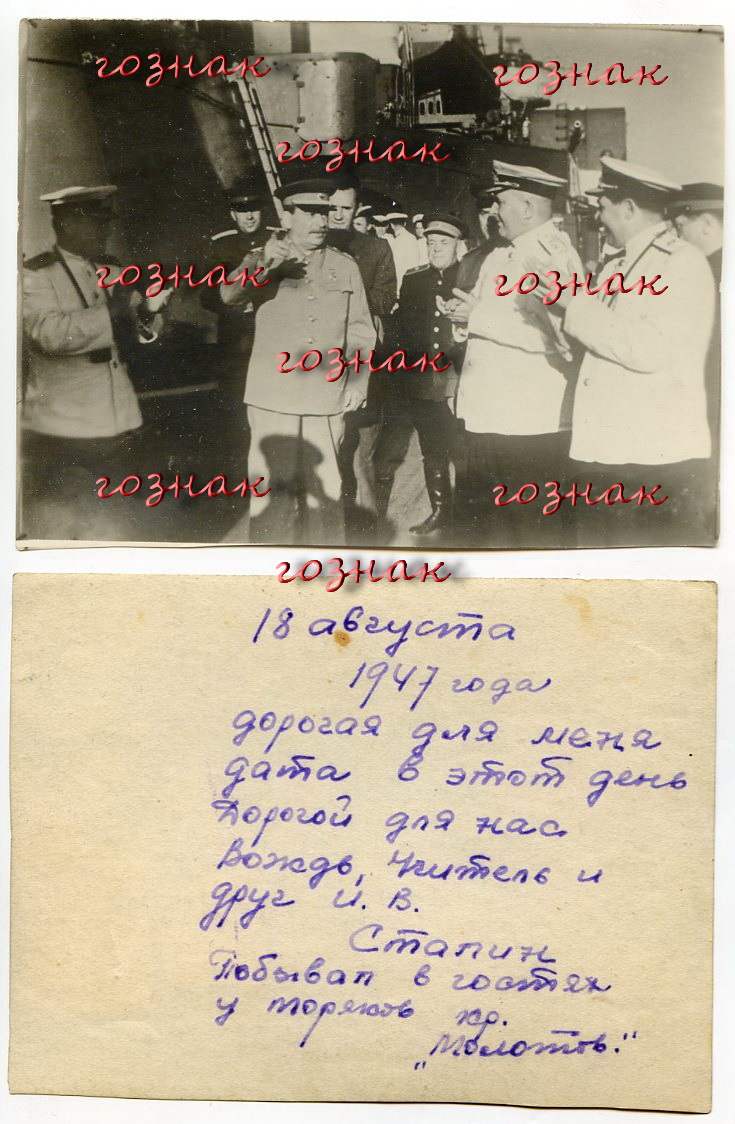 гознак гознак
гознак
гознак гознак
гознак
гознак гознак
гознак
18 августа
1947 года
дорогая для меня
дата в этот день
Дорогой для нас
Вождь, Учитель и
друг И. В.
Сталин
Побывал в гостях
у моряков кр.
„Молотов."